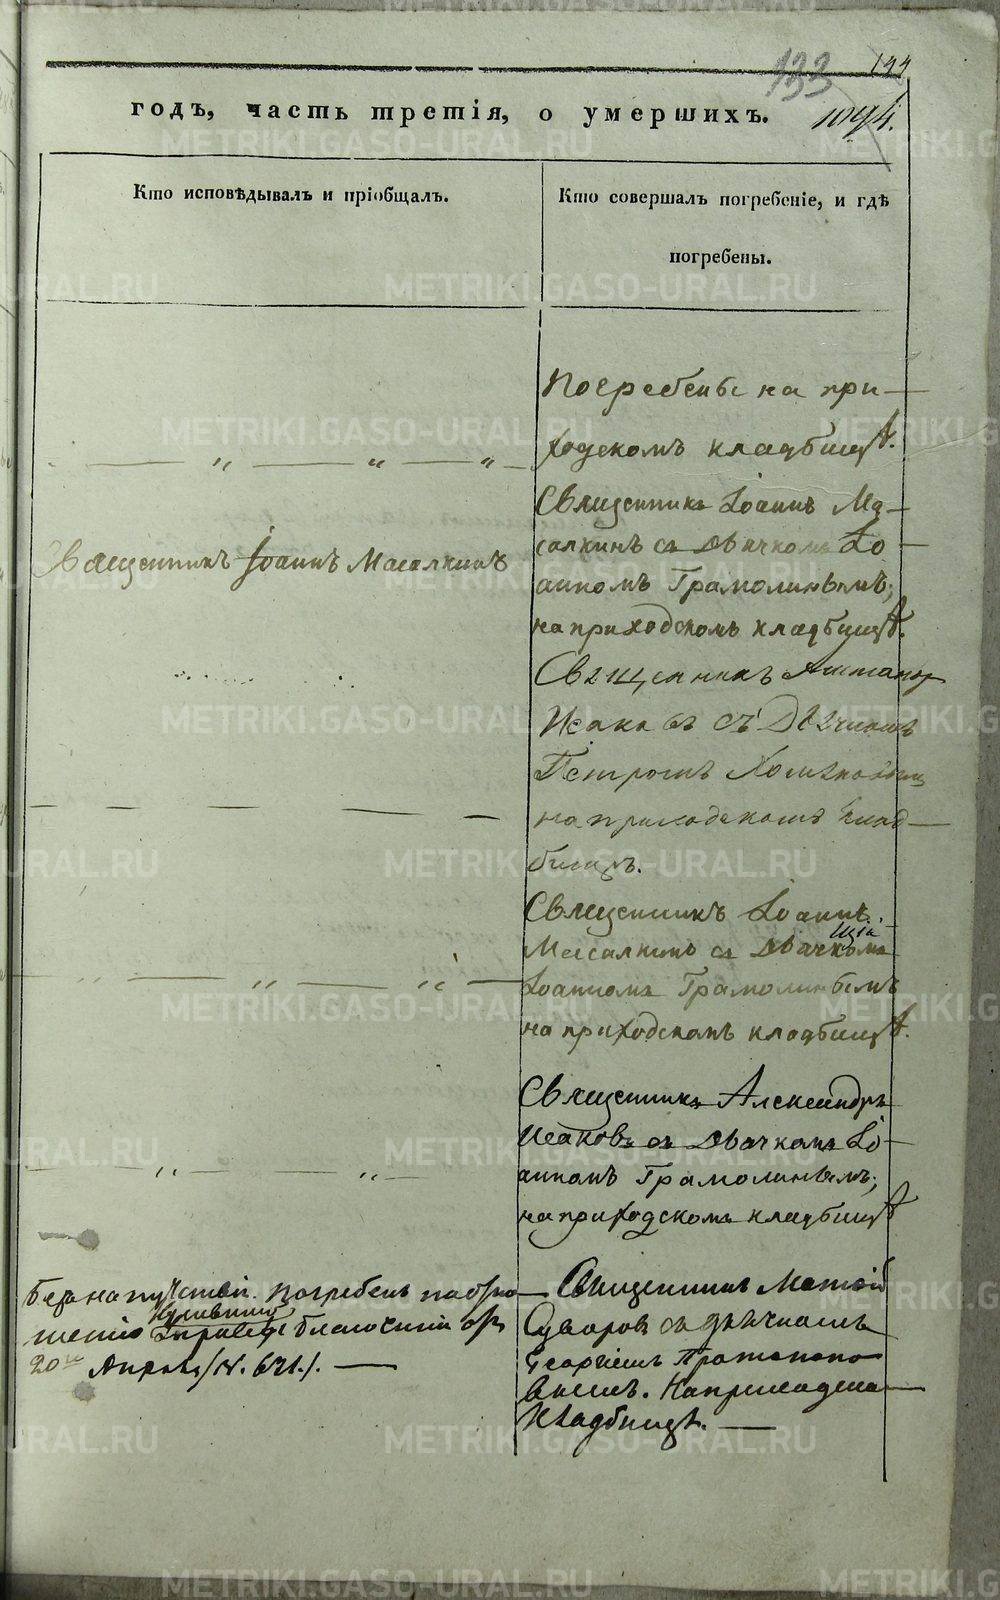 133
144
годъ, часть третія, о умершихъ.
1094.
Кто исповѣдывалъ и пріобщалъ.
Кто совершалъ погребеніе, и гдѣ
погребены.
Погребены на при-
ходскомъ кладбищѣ.
Священникъ Іоаннъ Ма-
салкинъ съ Дьячкомъ Іо-
Священникъ Іоаннъ Масалкинъ
анномъ Грамолинымъ;
на приходскомъ кладбищѣ.
Священникъ
Исаковъ съ Дьячкомъ
Петромъ Хомяковым
на приходскомъ клад-
бищѣ.
Священникъ Іоаннъ
Масалкинъ съ Дьячкомъ
Іоанномъ Грамолинымъ
на приходскомъ кладбищѣ.
Священникъ Александръ
Исаковъ съ Дьячкомъ Іо-
анномъ Грамолинымъ;
на приходскомъ кладбищѣ
Безъ напутствій. Погребенъ по отно-
шенію
20го Апрѣля (N. 621.).
Священникъ Матвій
Суворовъ съ дьячкомъ
Георгіемъ Протопопо
вымъ. На приходском
кладбищѣ.
METRIKI.GASO-URAL.RU